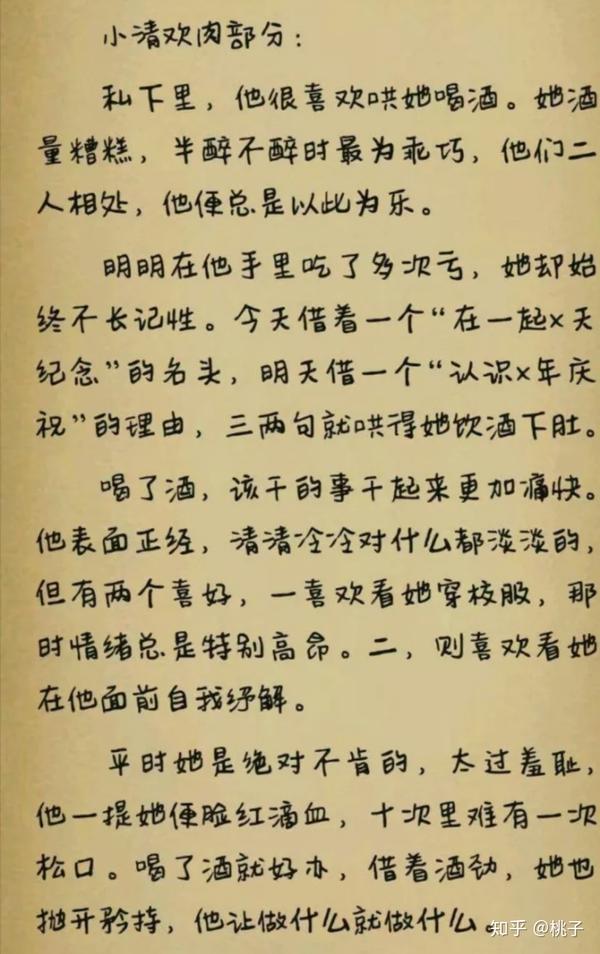 小清欢肉部分：
私下里，他很喜欢哄她喝酒。她酒
量糟糕，半醉不醉时最为乖巧，他们二
人相处，他便总是以此为乐。
明明在他手里吃了多次亏，她却始
终不长记性。今天借着一个“在一起x天
纪念”的名头，明天借一个“认识x年庆
祝”的理由，三两句就哄得她饮酒下肚。
喝了酒，该干的事干起来更加痛快。
他表面正经，清清冷冷对什么都淡淡的，
但有两个喜好，一喜欢看她穿校服，那
时情绪总是特别高昂。二，则喜欢看她
在他面前自我纾解。
平时她是绝对不肯的，太过羞耻，
他一提她便脸红滴血，十次里难有一次
松口。喝了酒就好办，借着酒劲，她也
抛开矜持，他让做什么就做什么。
知乎 @桃子